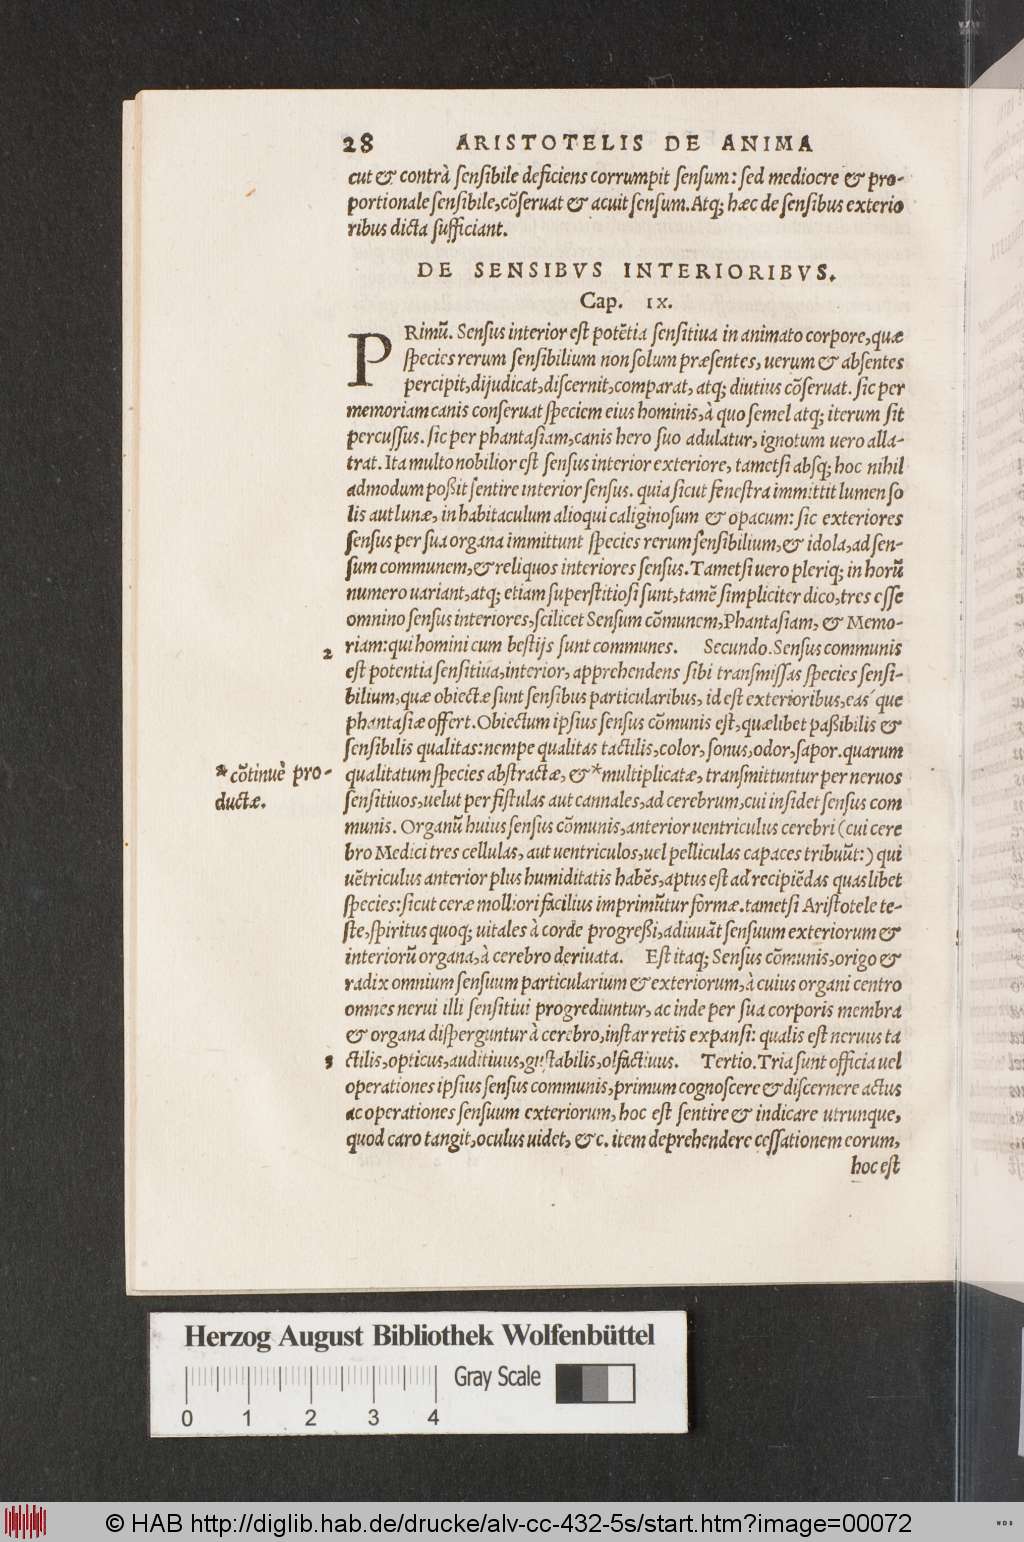 28 ARISTOTELIS DE ANIMA
cut & contrà sensibile deficiens corrumpit sensum: sed mediocre & pro-
portionale sensibile, cõseruat & acuit sensum. Atq; hæc de sensibus exterio
ribus dicta sufficiant.
DE SENSIBVS INTERIORIBVS.
Cap. IX.
PRimũ. Sensus interior est potẽtia sensitiua in animato corpore, quæ
species rerum sensibilium non solum præsentes, uerum & absentes
percipit, dijudicat, discernit, comparat, atq; diutius cõseruat. sic per
memoriam canis conseruat speciem eius hominis, à quo semel atq; iterum sit
percussus. sic per phantasiam, canis hero suo adulatur, ignotum uero alla-
trat. Ita multo nobilior est sensus interior exteriore, tametsi absq; hoc nihil
admodum poßit sentire interior sensus. quia sicut fenestra immittit lumen so
lis aut lunæ, in habitaculum alioqui caliginosum & opacum: sic exteriores
sensus per sua organa immittunt species rerum sensibilium, & idola, ad sen-
sum communem, & reliquos interiores sensus. Tametsi uero pleriq; in horũ
numero uariant, atq; etiam superstitiosi sunt, tamẽ simpliciter dico, tres esse
omnino sensus interiores, scilicet Sensum cõmunem, Phantasiam, & Memo-
2 riam: qui homini cum bestijs sunt communes. Secundo. Sensus communis
est potentia sensitiua, interior, apprehendens sibi transmissas species sensi-
bilium, quæ obiectæ sunt sensibus particularibus, id est exterioribus, eas´que
phantasiæ offert. Obiectum ipsius sensus cõmunis est, quælibet paßibilis &
sensibilis qualitas: nempe qualitas tactilis, color, sonus, odor, sapor. quarum
* cõtinuè pro-
ductæ.
qualitatum species abstractæ, &* multiplicatæ, transmittuntur per neruos
sensitiuos, uelut per fistulas aut cannales, ad cerebrum, cui insidet sensus com
munis. Organũ huius sensus cõmunis, anterior uentriculus cerebri (cui cere
bro Medici tres cellulas, aut uentriculos, uel pelliculas capaces tribuũt:) qui
uẽtriculus anterior plus humiditatis habẽs, aptus est ad recipiẽdas quaslibet
species: sicut ceræ molliori facilius imprimũtur formæ. tametsi Aristotele te-
ste, spiritus quoq; uitales à corde progreßi, adiuuãt sensuum exteriorum &
interiorũ organa, à cerebro deriuata. Est itaq; Sensus cõmunis, origo &
radix omnium sensuum particularium & exteriorum, à cuius organi centro
omnes nerui illi sensitiui progrediuntur, ac inde per sua corporis membra
& organa disperguntur à cerebro, instar retis expansi: qualis est neruus ta
3 ctilis, opticus, auditiuus, gustabilis, olfactiuus. Tertio. Tria sunt officia uel
operationes ipsius sensus communis, primum cognoscere & discernere actus
ac operationes sensuum exteriorum, hoc est sentire & indicare utrunque,
quod caro tangit, oculus uidet, &c. item deprehendere cessationem eorum,
hoc est
Herzog August Bibliothek Wolfenbüttel
Gray Scale
0 1 2 3 4
© HAB http://diglib.hab.de/drucke/alv-cc-432-5s/start.htm?image=00072